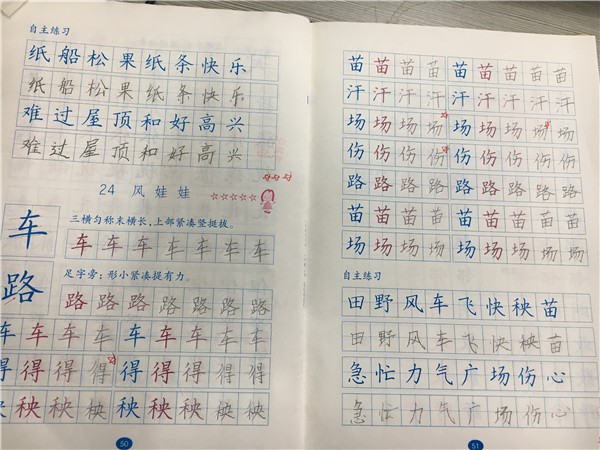 自主练习
纸船松果纸条快乐
纸船松果纸条快乐
难过屋顶和好高兴
难过屋顶和好高兴
24 风娃娃
三横匀称末横长，上部紧凑竖挺拔。
车
车车车车车车车
足字旁：形小紧凑提有力。
路
路路路路路路路
车车车车车车车车车
得得得得得得得得得
秧秧秧秧秧秧秧秧秧
50
苗苗苗苗苗苗苗苗苗
汗汗汗汗汗汗汗汗汗
场场场场场场场场场
伤伤伤伤伤伤伤伤伤
路路路路路路路路路
苗苗苗苗苗苗苗苗苗
场场场场场场场场场
自主练习
田野风车飞快秧苗
田野风车飞快秧苗
急忙力气广场伤心
急忙力气广场伤心
51